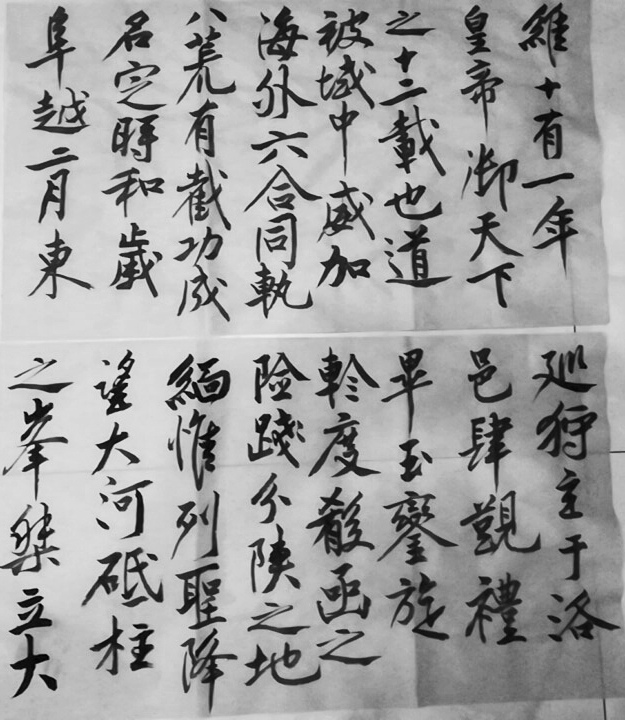 維十有一年
皇帝御天下
之十二載也道
被域中威加
海外六合同軌
八荒有截功成
名定時和歲
阜越二月東
巡狩主于洛
邑肆覲禮
畢玉鑾旋
軫度殽函之
險踐分陝之地
緬惟列聖降
望大河砥柱
之峯桀立大